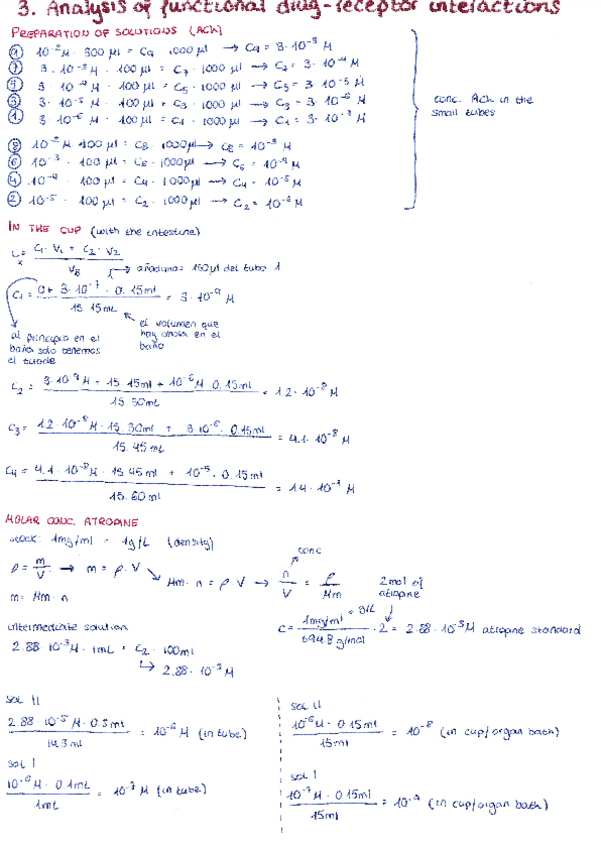 3. Analysis of functional drug-receptor interactions
PREPARATION OF SOLUTIONS (ACh)
⑨ 10⁻² M · 300 µl = C9 · 1000 µl → C9 = 3·10⁻³ M
⑦ 3·10⁻³ M · 100 µl = C7 · 1000 µl → C7 = 3·10⁻⁴ M
3·10⁻⁴ M · 100 µl = C5 · 1000 µl → C5 = 3·10⁻⁵ M
③ 3·10⁻⁵ M · 100 µl = C3 · 1000 µl → C3 = 3·10⁻⁶ M
① 3·10⁻⁶ M · 100 µl = C1 · 1000 µl → C1 = 3·10⁻⁷ M
conc. ACh in the
small tubes
⑧ 10⁻² M · 100 µl = C8 · 1000 µl → C8 = 10⁻³ M
⑥ 10⁻³ · 100 µl = C6 · 1000 µl → C6 = 10⁻⁴ M
④ 10⁻⁴ · 100 µl = C4 · 1000 µl → C4 = 10⁻⁵ M
② 10⁻⁵ · 100 µl = C2 · 1000 µl → C2 = 10⁻⁶ M
IN THE CUP (with the intestine)
Cx = C1 · V1 + C2 · V2
→ añadimos 150 µl del tubo 1
C1 = 0 + 3·10⁻⁷ · 0.15 ml / 15.15 ml = 3·10⁻⁹ M
al principio en el
baño solo tenemos
el tyrode
el volumen que
hay ahora en el
baño
C2 = 3·10⁻⁹ M · 15.15 ml + 10⁻⁶ M · 0.15 ml / 15.30 ml = 1.2·10⁻⁸ M
C3 = 1.2·10⁻⁸ M · 15.30 ml + 3·10⁻⁶ · 0.15 ml / 15.45 ml = 4.1·10⁻⁸ M
C4 = 4.1·10⁻⁸ M · 15.45 ml + 10⁻⁵ · 0.15 ml / 15.60 ml = 1.4·10⁻⁷ M
MOLAR CONC. ATROPINE
stock: 1mg/ml = 1g/L (density)
ρ = m/V → m = ρ·V
Mm · n = ρ·V → n/V = ρ/Mm
conc
m = Mm · n
2 mol of
atropine
= g/L
c = 1mg/ml / 694.8 g/mol · 2 = 2.88·10⁻³ M atropine standard
intermediate solution
2.88·10⁻³ M · 1mL = C2 · 100ml
→ 2.88·10⁻⁵ M
sol II
2.88·10⁻⁵ M · 0.5 ml / 14.3 ml = 10⁻⁶ M (in tube)
sol I
10⁻⁶ M · 0.1 mL / 1mL = 10⁻⁷ M (in tube)
sol II
10⁻⁶ M · 0.15 ml / 15ml = 10⁻⁸ (in cup/organ bath)
sol I
10⁻⁷ M · 0.15 ml / 15ml = 10⁻⁹ (in cup/organ bath)